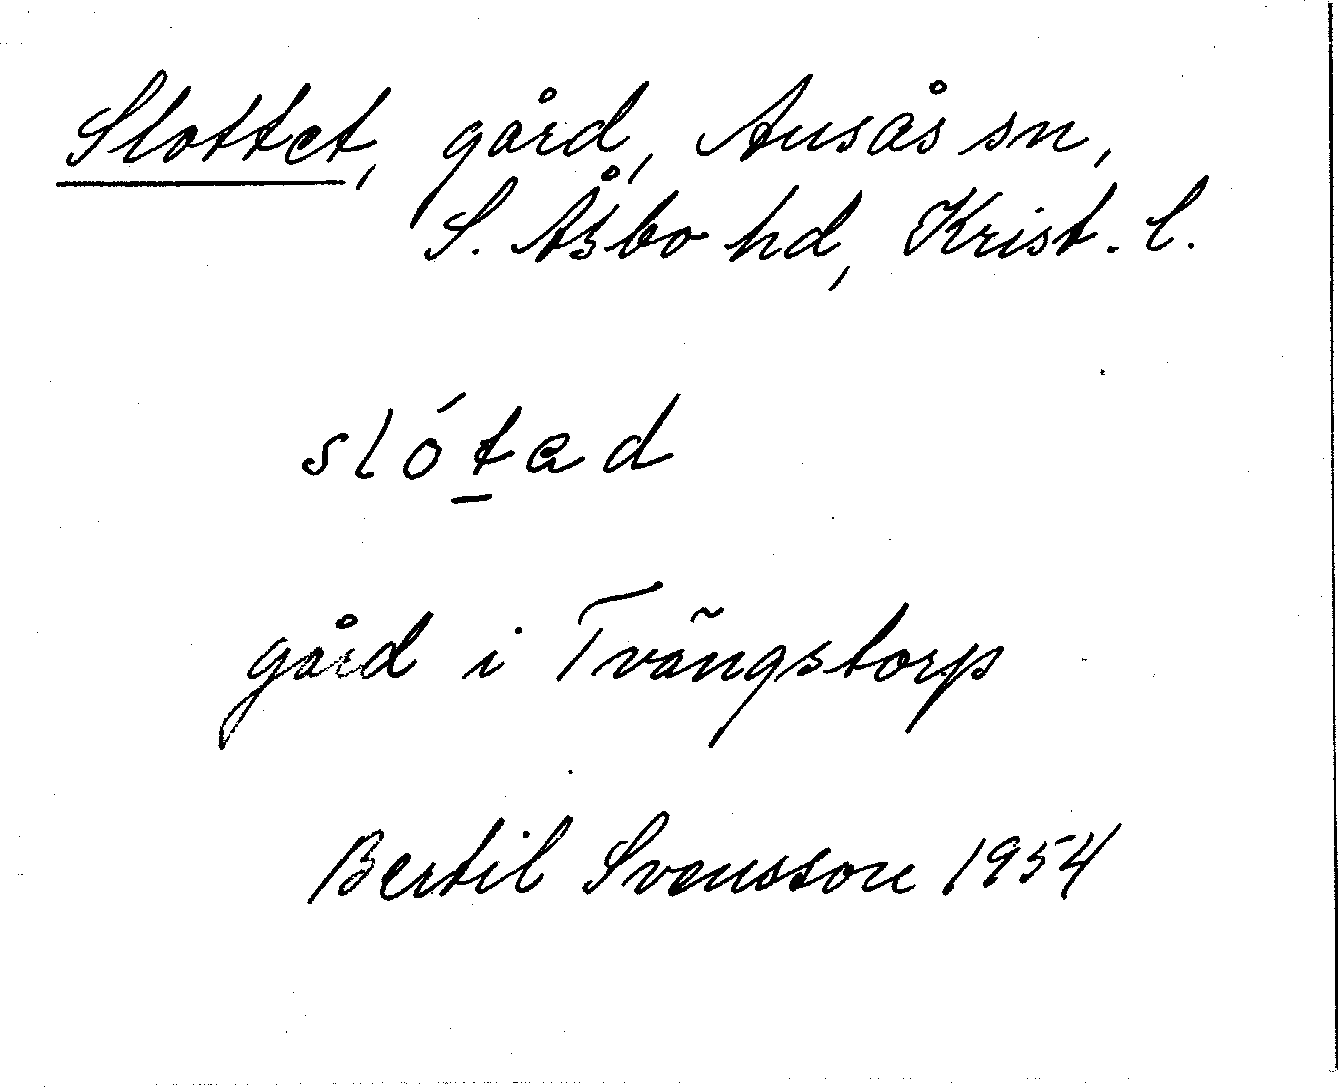 Slottet, gård, Ausås sn,
S. Åsbo hd, Krist. l.
slótad
gård i Tvängstorp
Bertil Svensson 1954